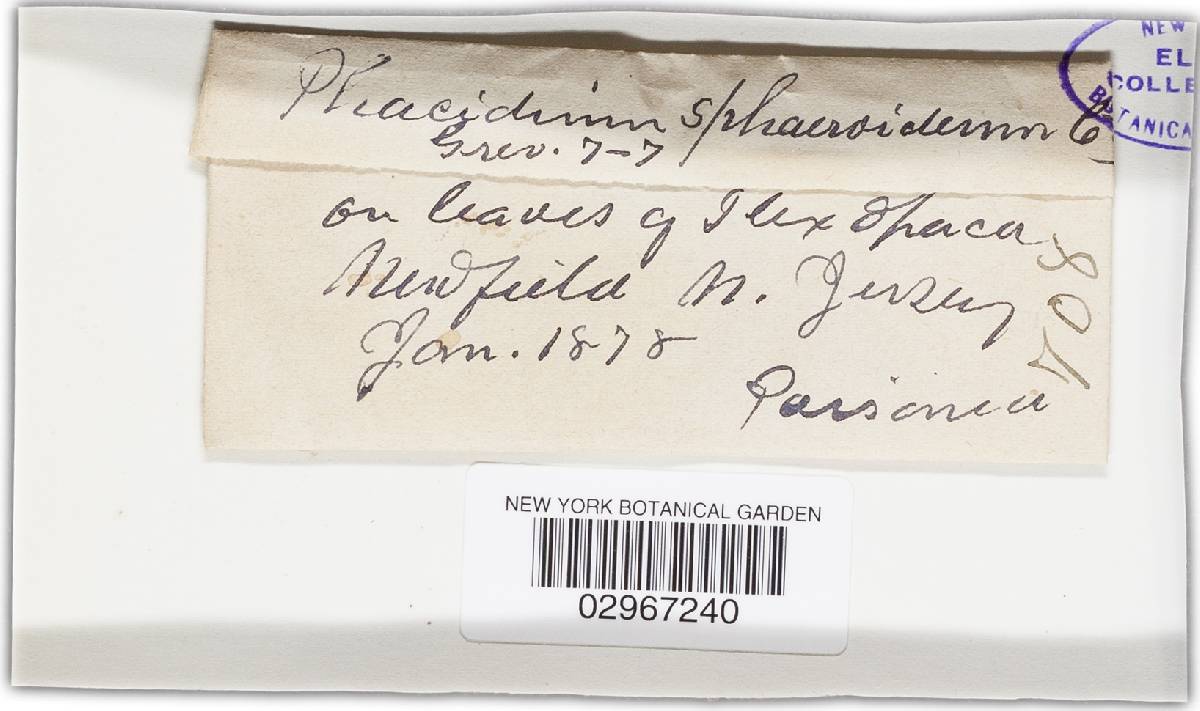 NEW
EL
COLLE
BOTANICA
Phacidium sphaeroideum C
Grev. 7-7
on leaves of Ilex Opaca
Newfield N. Jersey
Jan. 1878
708
NEW YORK BOTANICAL GARDEN
02967240